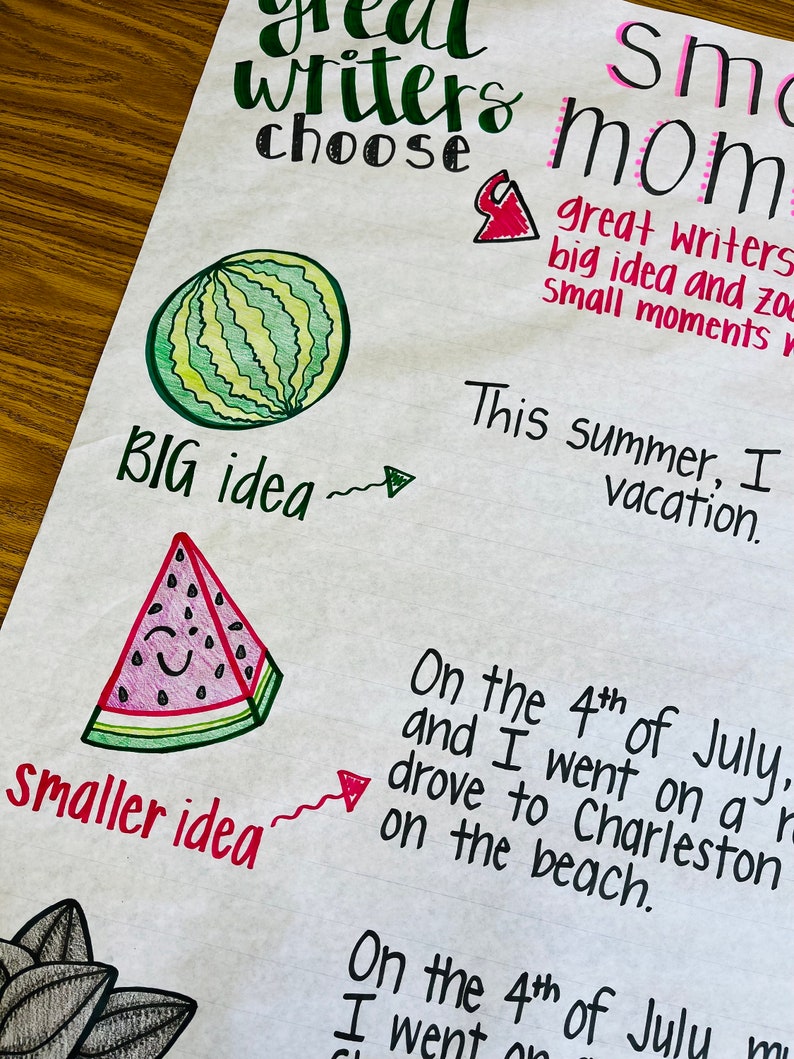 great
writers
choose
small
great writers
big idea and
small moments
BIG idea
This summer, I
vacation.
smaller idea
On the 4th of July,
and I went on a
drove to Charleston
on the beach.
On the 4th of July,
I went on